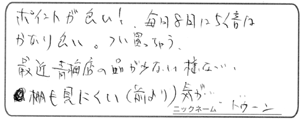 ポイントが良い！ 毎月8日に5く音は
かなり良い。つい買っちゃう。
最近青梅店の品が少ない様な…
棚も見にくい(前より)気が
ニックネーム トゥーン